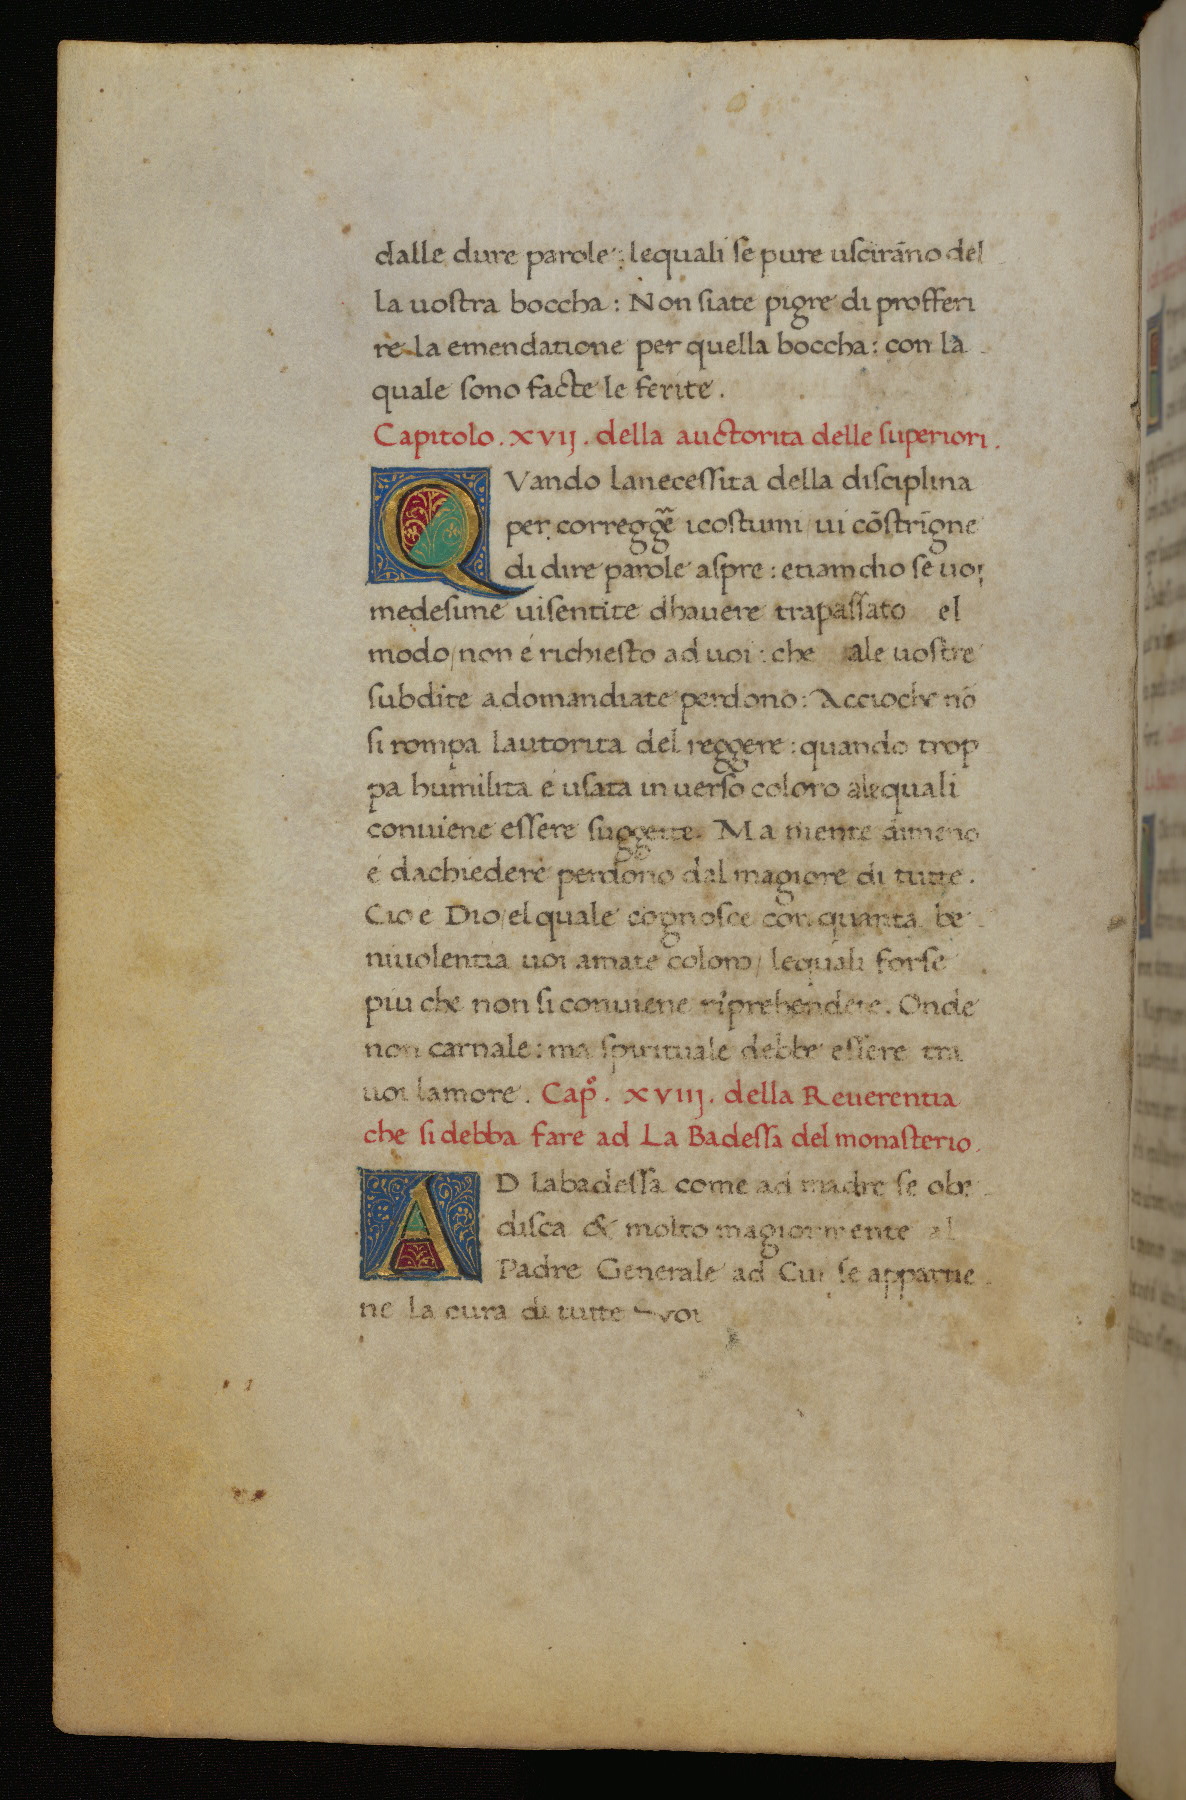 dalle dure parole: lequali se pure uscirãno del
la uostra boccha: Non siate pigre di profferi
re la emendatione per quella boccha: con la
quale sono facte le ferite.
Capitolo. xvij. della auctorita delle superiori.
QVando lanecessita della disciplina
per corregg̃e icostumi ui cõstrĩgne
di dire parole aspre: etiamdio se uoi
medesime uisentite dhauere trapassato el
modo/ non é richiesto ad uoi: che ale uostre
subdite adomandiate perdono: Accioche nõ
si rompa lautorita del reggere: quando trop
pa humilita é usata in uerso coloro alequali
conuiene essere suggette. Ma niente dimeno
é dachiedere perdono dal magiore di tutte.
Cio e Dio/ el quale cognosce con quanta be
niuolentia uoi amate coloro/ lequali forse
piu che non si conuiene riprehendete. Onde
non carnale: ma spirituale debbe essere tra
uoi lamore. Capº. xviij. della Reuerentia
che si debba fare ad La Badessa del monasterio.
AD labadessa come ad madre se obe
disca & molto magiormente al
Padre Generale ad Cui se appartie
ne la cura di tutte voi